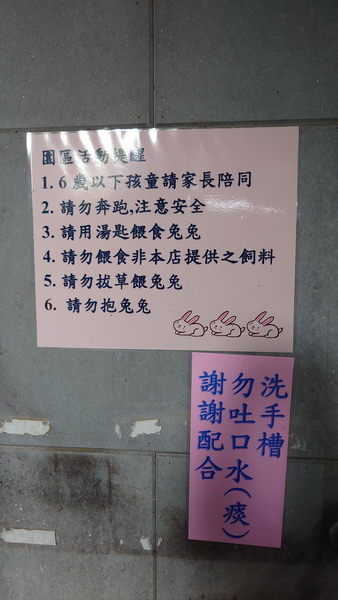 園區活動提醒
1. 6 歲以下孩童請家長陪同
2. 請勿奔跑,注意安全
3. 請用湯匙餵食兔兔
4. 請勿餵食非本店提供之飼料
5. 請勿拔草餵兔兔
6. 請勿抱兔兔
洗手槽
勿吐口水(痰)
謝謝配合